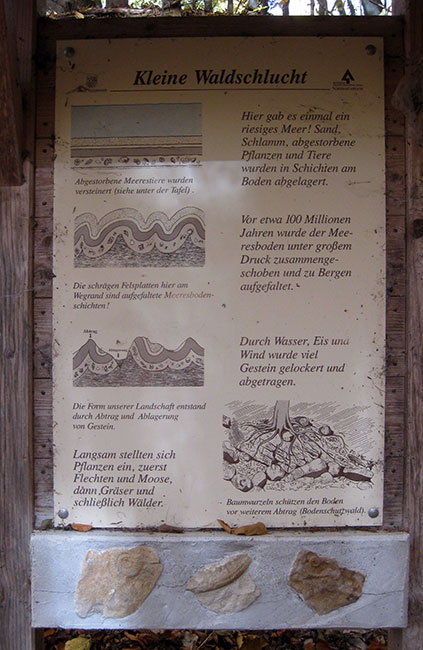 Kleine Waldschlucht
Hier gab es einmal ein
riesiges Meer! Sand,
Schlamm, abgestorbene
Pflanzen und Tiere
wurden in Schichten am
Boden abgelagert.
Abgestorbene Meerestiere wurden
versteinert (siehe unter der Tafel).
Vor etwa 100 Millionen
Jahren wurde der Mee-
resboden unter großem
Druck zusammenge-
schoben und zu Bergen
aufgefaltet.
Die schrägen Felsplatten hier am
Wegrand sind aufgefaltete Meeresboden-
schichten!
Abtrag
Durch Wasser, Eis und
Wind wurde viel
Gestein gelockert und
abgetragen.
Die Form unserer Landschaft entstand
durch Abtrag und Ablagerung
von Gestein.
Langsam stellten sich
Pflanzen ein, zuerst
Flechten und Moose,
dann Gräser und
schließlich Wälder.
Baumwurzeln schützen den Boden
vor weiterem Abtrag (Bodenschutzwald).